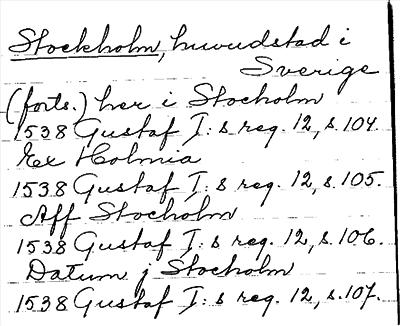 Stockholm, huvudstad i
Sverige
(forts.) her i Stocholm
1538 Gustaf I:s reg. 12, s. 104.
Ex Holmia
1538 Gustaf I:s reg. 12, s. 105.
Aff Stocholm
1538 Gustaf I:s reg. 12, s. 106.
Datum j Stocholm
1538 Gustaf I:s reg. 12, s. 107.